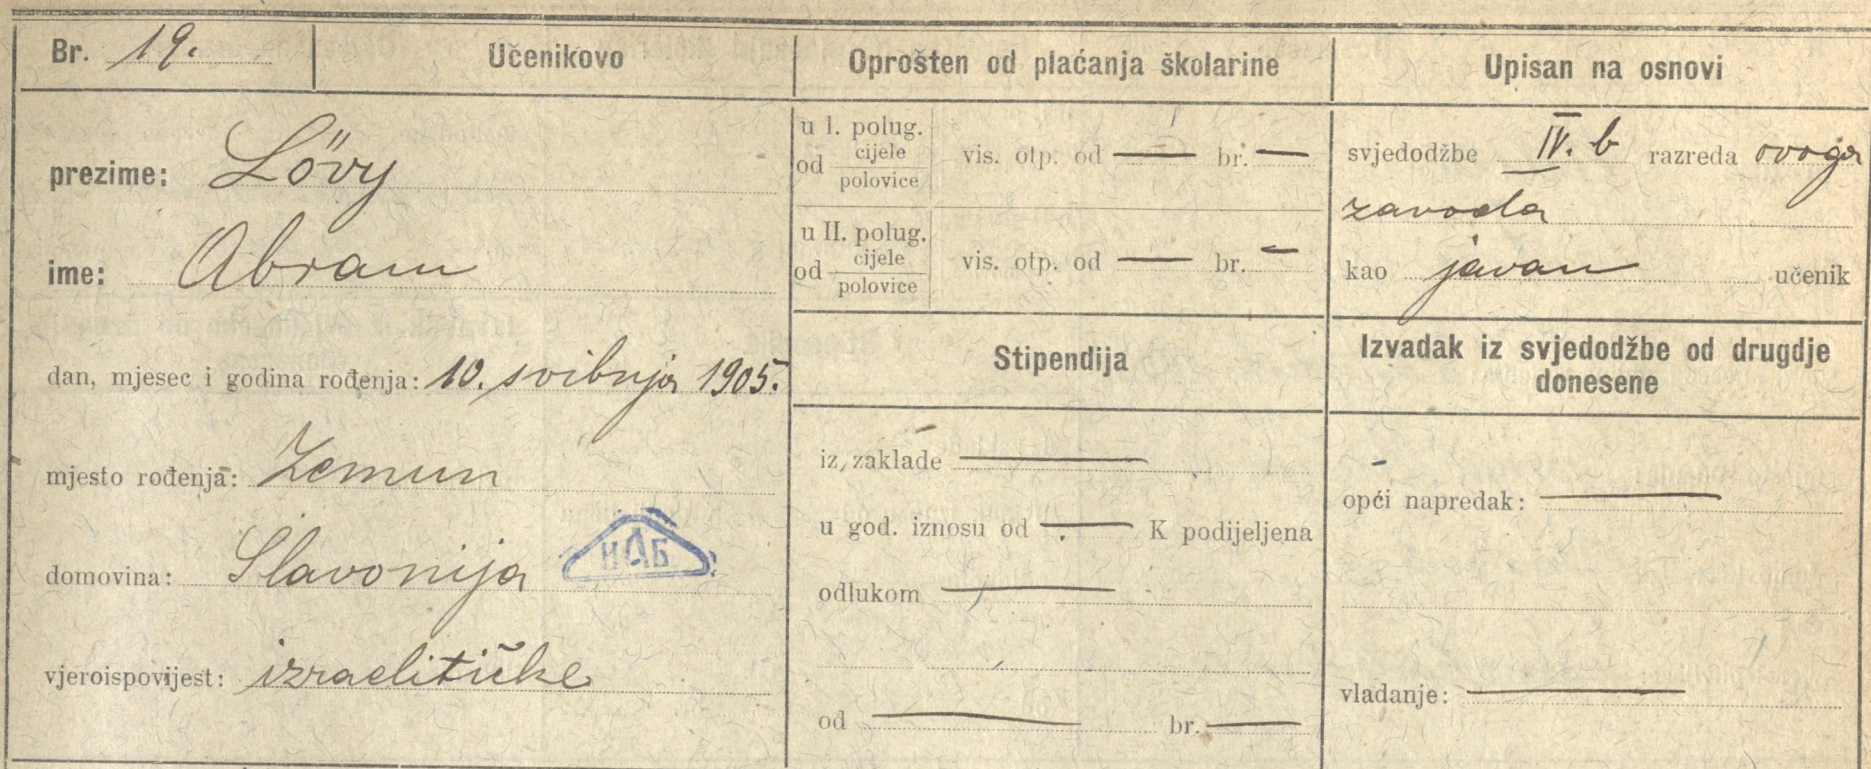 Br. 19.
Učenikovo
prezime: Lövy
ime: Abram
dan, mjesec i godina rođenja: 10. svibnja 1905.
mjesto rođenja: Zemun
domovina: Slavonija
НАБ
vjeroispovijest: izraelitičke
Oprošten od plaćanja školarine
u I. polug.
od cijele
polovice
vis. otp. od — br. —
u II. polug.
od cijele
polovice
vis. otp. od — br. —
Stipendija
iz zaklade —
u god. iznosu od — K podijeljena
odlukom —
od — br. —
Upisan na osnovi
svjedodžbe IV. b razreda ovoga
zavoda
kao javan učenik
Izvadak iz svjedodžbe od drugdje
donesene
opći napredak: —
vladanje: —